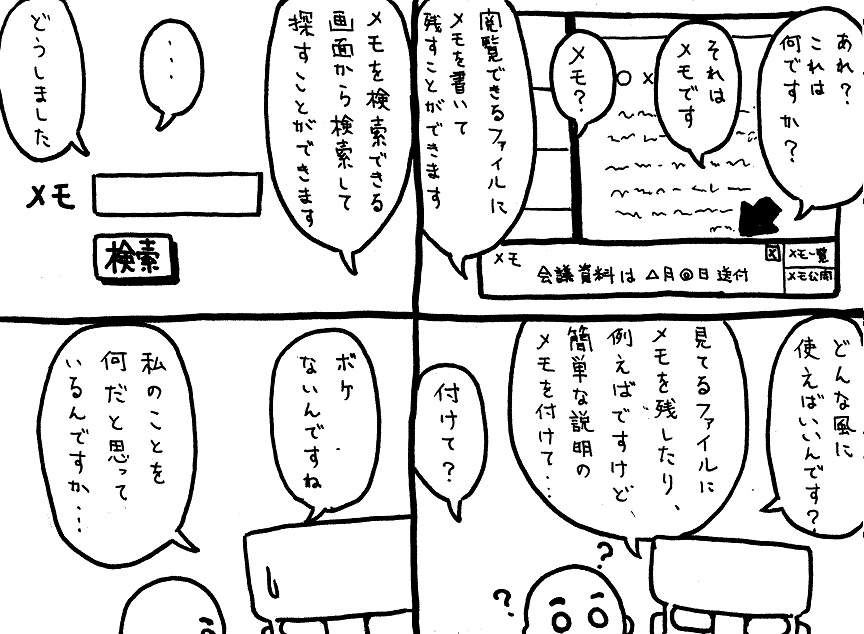 あれ？
これは
何ですか？
それは
メモです
メモ？
閲覧できるファイルに
メモを書いて
残すことができます
○×
メモ
会議資料は△月◎日送付
x
メモ一覧
メモ公開
どんな風に
使えばいいんです？
見てるファイルに
メモを残したり、
例えばですけど、
簡単な説明の
メモを付けて...
付けて？
？
？
メモを検索できる
画面から検索して
探すことができます
...
どうしました
メモ
検索
ボケ
ないんですね
私のことを
何だと思って
いるんですか...